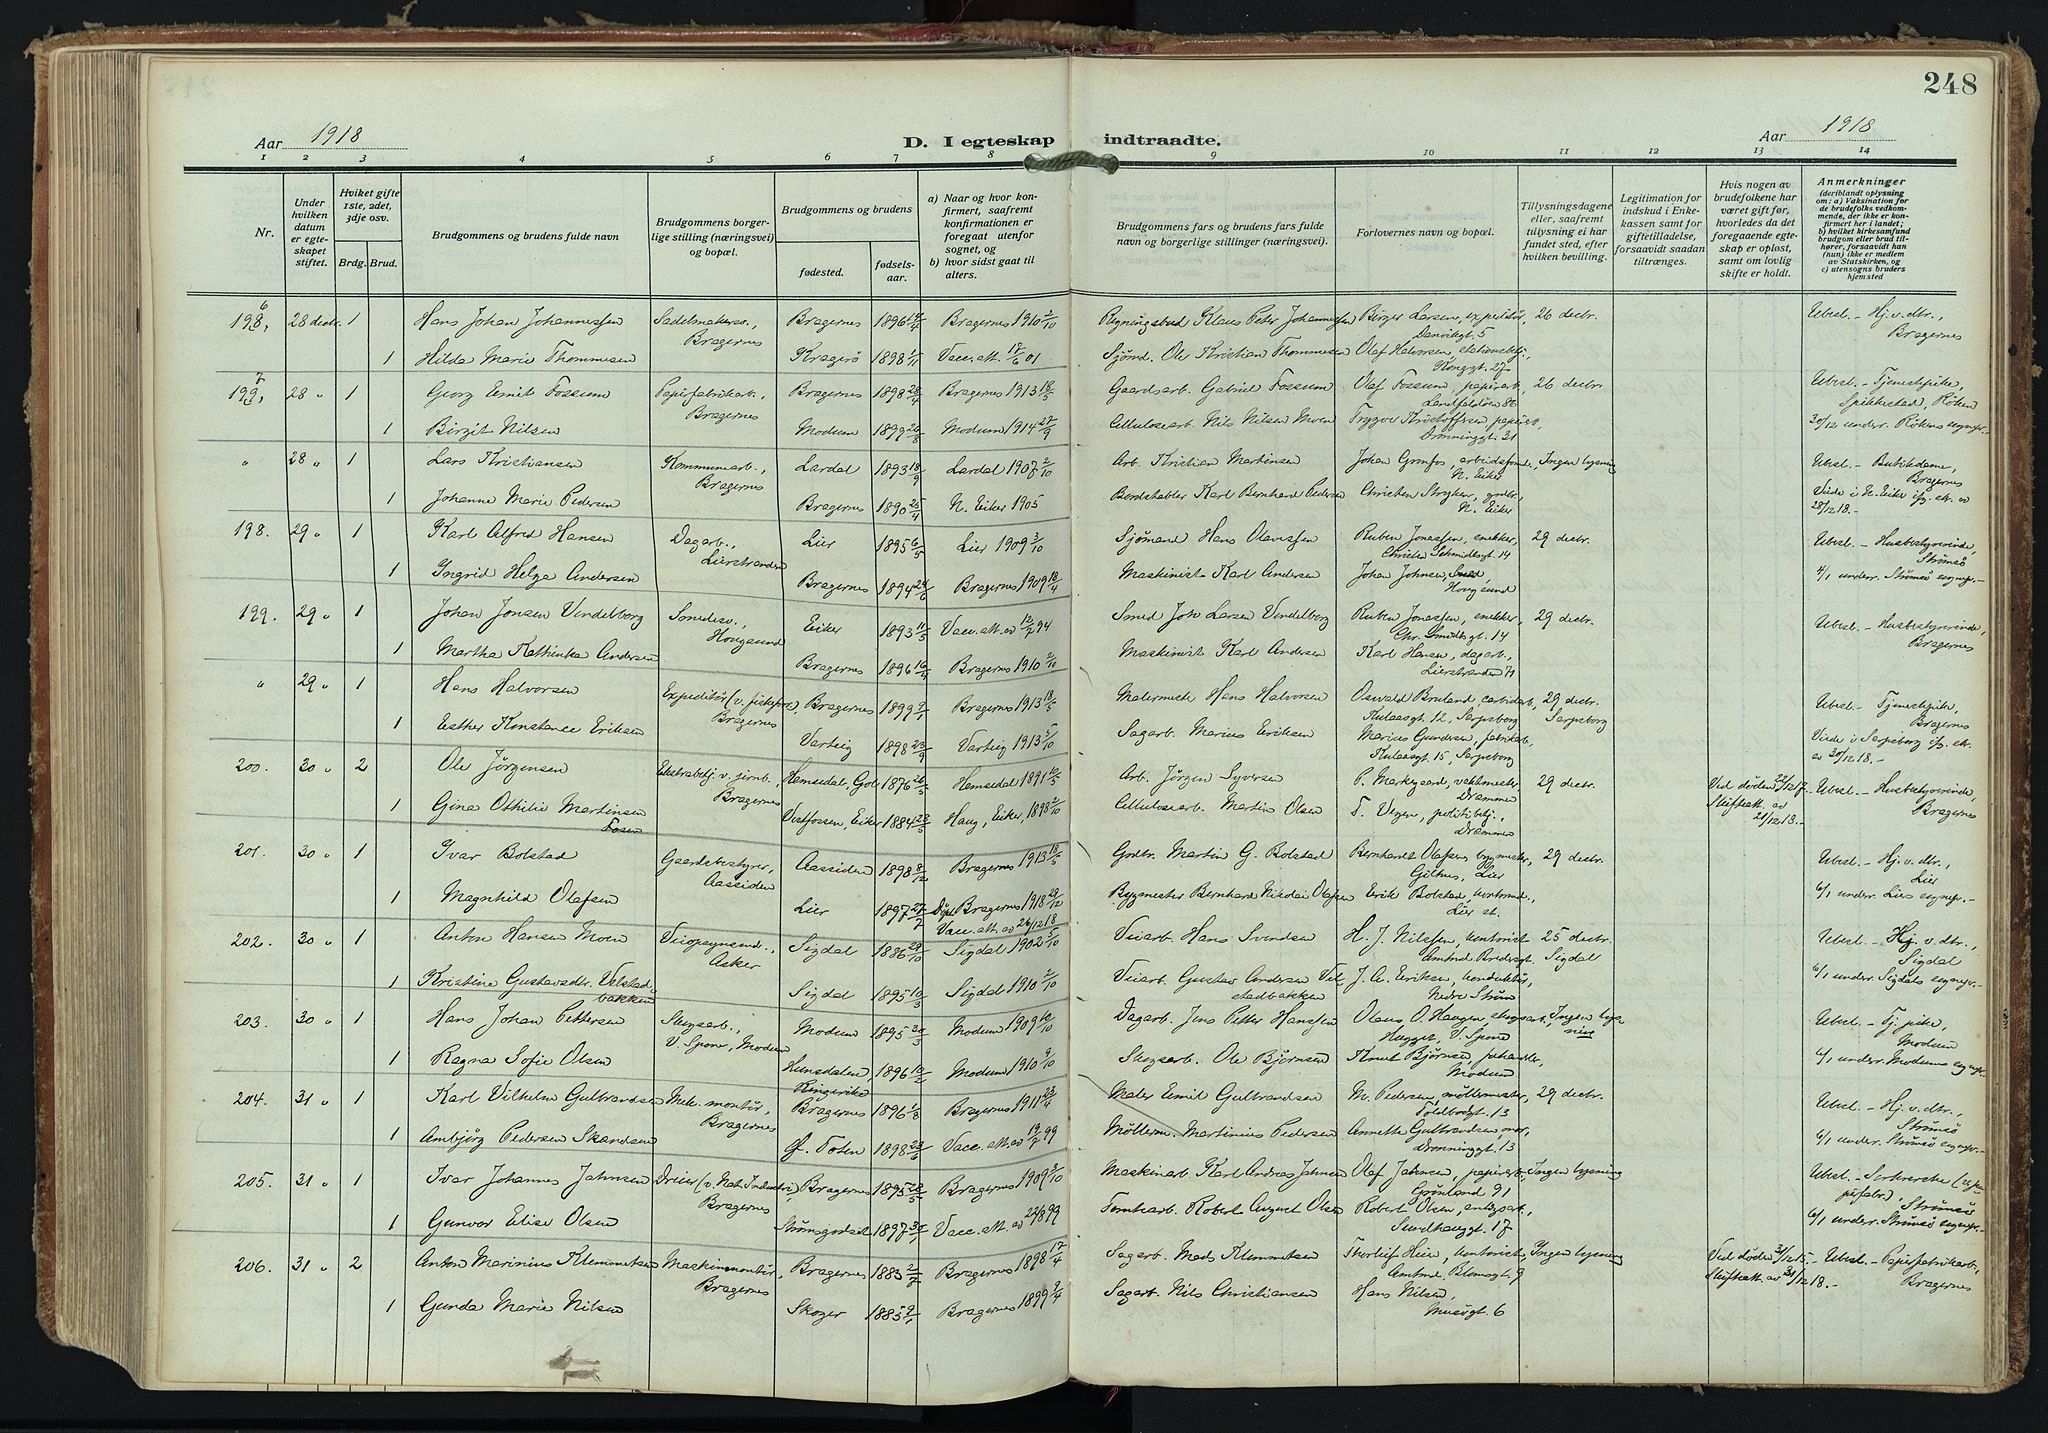 248
Aar 1918
D. I egteskap indtraadte.
Aar 1918
1 2 3 4 5 6 7 8 9 10 11 12 13 14
Nr.
Under hvilken datum er egteskapet stiftet.
Hviket gifte 1ste, 2det, 3dje osv.
Brdg. Brud.
Brudgommens og brudens fulde navn
Brudgommens borgerlige stilling (næringsvei) og bopæl.
Brudgommens og brudens
fødested.
fødselsaar.
a) Naar og hvor konfirmert, saafremt konfirmationen er foregaat utenfor sognet, og
b) hvor sidst gaat til alters.
Brudgommens fars og brudens fars fulde navn og borgerlige stillinger (næringsvei).
Forlovernes navn og bopæl.
Tillysningsdagene eller, saafremt tillysning ei har fundet sted, efter hvilken bevilling.
Legitimation for indskud i Enkekassen samt for giftetilladelse, forsaavidt saadan tiltrænges.
Hvis nogen av brudefolkene har været gift før, hvorledes da det foregaaende egteskap er opløst, samt om lovlig skifte er holdt.
Anmerkninger (deriblandt oplysning om: a) Vaksination for de brudefolks vedkommende, der ikke er konfirmert her i landet; b) hvilket kirkesamfund brudgom eller brud tilhører, forsaavidt han (hun) ikke er medlem av Statskirken, og c) utensogns bruders hjemsted
198, 6 28 decbr. 1 Hans Johan Johannessen Sadelmakersv., Bragernes Bragernes 1896 Bragernes 1910 2/10 Bygningsbud Klaus Peter Johannessen Birger Larsen, expeditør, Danvikgt. 5 26 decbr. Ubesl. - Hj. v. dtr., Bragernes
1 Hilda Marie Thommesen Kragerø 1898 1/11 Vacc. att. 17/6 01 Sjømd. Ole Kristian Thommesen Olaf Halvorsen, stationsbetj., Konggt. 27
199, 7 28 " 1 Georg Emil Fossum Papirfabrikarb., Bragernes Bragernes 1898 28/4 Bragernes 1913 18/5 Gaardsarb. Gabriel Fossum Olaf Fossum, papirarb., Landfaldøen 86 26 decbr. Ubesl. - Tjenestepike, Spikkestad, Røken
1 Birgit Nilsen Modum 1899 26/8 Modum 1914 27/9 Cellulosearb. Nils Nilsen Moen Trygve Kristoffersen, papirarb., Dronninggt. 31 30/12 underr. Røkens sognepr. -
" 28 " 1 Lars Kristiansen Kommunearb., Bragernes Lardal 1893 18/9 Lardal 1907 2/10 Arb. Kristian Martinsen Johan Gronfos, arbeidsformd., N. Eiker Ingen lysning Ubesl. - Butikdame, Bragernes
1 Johanne Marie Pedersen Bragernes 1890 25/4 N. Eiker 1905 Bordstabler Karl Bernhard Pedersen Christen Stryken, N. Eiker Viede i N. Eiker ifg. att. av 28/12 18. -
198. 29 " 1 Karl Alfred Hansen Dagarb., Lierstranden Lier 1895 6/5 Lier 1909 3/10 Sjømand Hans Olaussen Ruben Jonassen, snekker, Christen Schmidtsgt. 14 29 decbr. Ubesl. - Husbestyrerinde, Strømsø
1 Ingrid Helga Andersen Bragernes 1894 24/6 Bragernes 1909 18/4 Maskinist Karl Andersen Johan Johnsen, Smed, Hougsund 4/1 underr. Strømsø sognepr. -
199. 29 " 1 Johan Jonsen Vendelborg Smedesv., Hougsund Eiker 1893 11/5 Vacc. att. av 12/7 94 Smed John Larsen Vendelborg Ruben Jonassen, snekker, Chr. Smidtsgt. 14 29 decbr. Ubesl. - Husbestyrerinde, Bragernes
1 Martha Kathinka Andersen Bragernes 1896 Bragernes 1910 2/10 Maskinist Karl Andersen Karl Hansen, dagarb., Lierstranden 71
" 29 " 1 Hans Halvorsen Expeditør (v. fiskeforr.), Bragernes Bragernes 1899 7/1 Bragernes 1913 18/5 Malermester Hans Halvorsen Oswald Bruland, carbidarb., Kulaasgt. 12, Sarpsborg 29 decbr. Sarpsborg Ubesl. - Tjenestepike, Bragernes
1 Esther Konstance Eriksen Varteig 1898 23/9 Varteig 1913 5/10 Sagarb. Marius Eriksen Marius Gundersen, fabrikarb., Kulaasgt. 15, Sarpsborg Viede i Sarpsborg ifg. att. av 30/12 18. -
200. 30 " 2 Ole Jørgensen Ekstrabetj. v. jernb., Bragernes Hemsedal, Gol 1876 26/5 Hemsedal 1891 Arb. Jørgen Syversen P. Markegaard, vaktmester, Drammen 29 decbr. Ved døden 22/12 17. - Skifteatt. av 21/12 18. - Ubesl. - Husbestyrerinde, Bragernes
1 Gina Othilie Martinsen Vestfossen, Eiker 1884 23/5 Haug, Eiker, 1898 2/10 Cellulosearb. Martin Olsen T. Vegen, politibtj., Drammen
201. 30 " 1 Ivar Bolstad Gaardsbestyrer, Aassiden Aassiden 1898 8/12 Bragernes 1913 18/5 Godtr. Martin G. Bolstad Bernhardt Olafsen, bygmester, Gilhus, Lier 29 decbr. Ubesl. - Hj. v. dtr., Lier
1 Magnhild Olafsen Lier 1897 27/7 Døpt Bragernes 1918 28/12 Vacc. att. av 26/12 18 Bygmester Bernhard Nikolai Olafsen Eirik Bolstad, kontormd., Lier st. 6/1 underr. Lies sognepr. -
202. 30 " 1 Anton Hansen Moen Veiopsynsmd., Asker Sigdal 1886 28/10 Sigdal 1902 5/10 Veiarb. Hans Svendsen H. J. Nilssen, kontorist, Amtmd. Bredesgt. 25 decbr. Sigdal Ubesl. - Hj. v. dtr., Sigdal
1 Kristine Gustavsdtr. Velstadbakken Sigdal 1895 10/3 Sigdal 1910 2/10 Veiarb. Gustav Andersen Velstadbakken J. A. Eriksen, konduktør, Nedre Strøm 6/1 underr. Sigdals sognepr. -
203. 30 " 1 Hans Johan Pettersen Skogsarb., V. Spone, Modum Modum 1895 20/3 Modum 1909 10/10 Dagarb. Jens Petter Hanssen Olaus O. Haugen, skogsarb., Hugget, V. Spone Ingen lysning Ubesl. - Tj. pike, Modum
1 Ragna Sofie Olsen Hunsdalen, Ringerike 1896 10/2 Modum 1910 9/10 Skogsarb. Ole Bjørnsen Knut Bjørnsen, Modum 6/1 underr. Modums sognepr. -
204. 31 " 1 Karl Vilhelm Gulbrandsen Mek. montør, Bragernes Bragernes 1896 1/8 Bragernes 1911 23/4 Maler Emil Gulbrandsen M. Pedersen, møllemester, Toldbodgt. 13 29 decbr. Ubesl. - Hj. v. dtr., Strømsø
1 Ambjørg Pedersen Skandsen Ø. Toten 1898 23/6 Vacc. att. av 19/7 99 Møllerm. Martinius Pedersen Annette Gulbrandsen, mor, Dronninggt. 13 6/1 underr. Strømsø sognepr. -
205. 31 " 1 Ivar Johannes Jahnsen Dreier (v. Nat. Industri), Bragernes Bragernes 1895 28/5 Bragernes 1909 3/10 Maskinarb. Karl Andreas Jahnsen Olaf Jahnsen, papirarb., Grønland 91 Ingen lysning Ubesl. - Sorterske (v. papirfabr.), Strømsø
1 Gunvor Elise Olsen Strømsgodset 1897 Vacc. att. av 22/8 99 Tomtearb. Robert August Olsen Robert Olsen, anlegsarb., Sundhauggt. 17 6/1 underr. Strømsø sognepr. -
206. 31 " 2 Anton Marinius Klemmetsen Maskinmontør, Bragernes Bragernes 1883 2/7 Bragernes 1898 17/4 Sagarb. Mads Klemmetsen Thorleif Heier, kontorist, Amtmd. Blomsgt. 9 Ingen lysning Ved døden 31/12 15. - Skifteatt. av 31/12 18. - Ubesl. - Papirfabrikarb., Bragernes
1 Gunda Marie Nilsen Skoger 1885 9/1 Bragernes 1899 9/4 Sagarb. Nils Christiansen Hans Nilsen, Muségt. 6